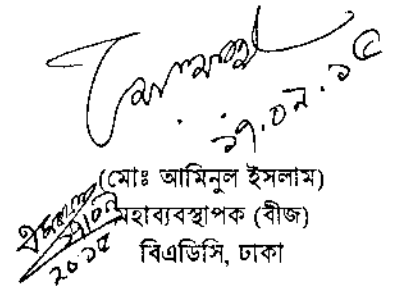 ১৭.০৯.১৫
(মোঃ আমিনুল ইসলাম)
মহাব্যবস্থাপক (বীজ)
বিএডিসি, ঢাকা
২০১৫